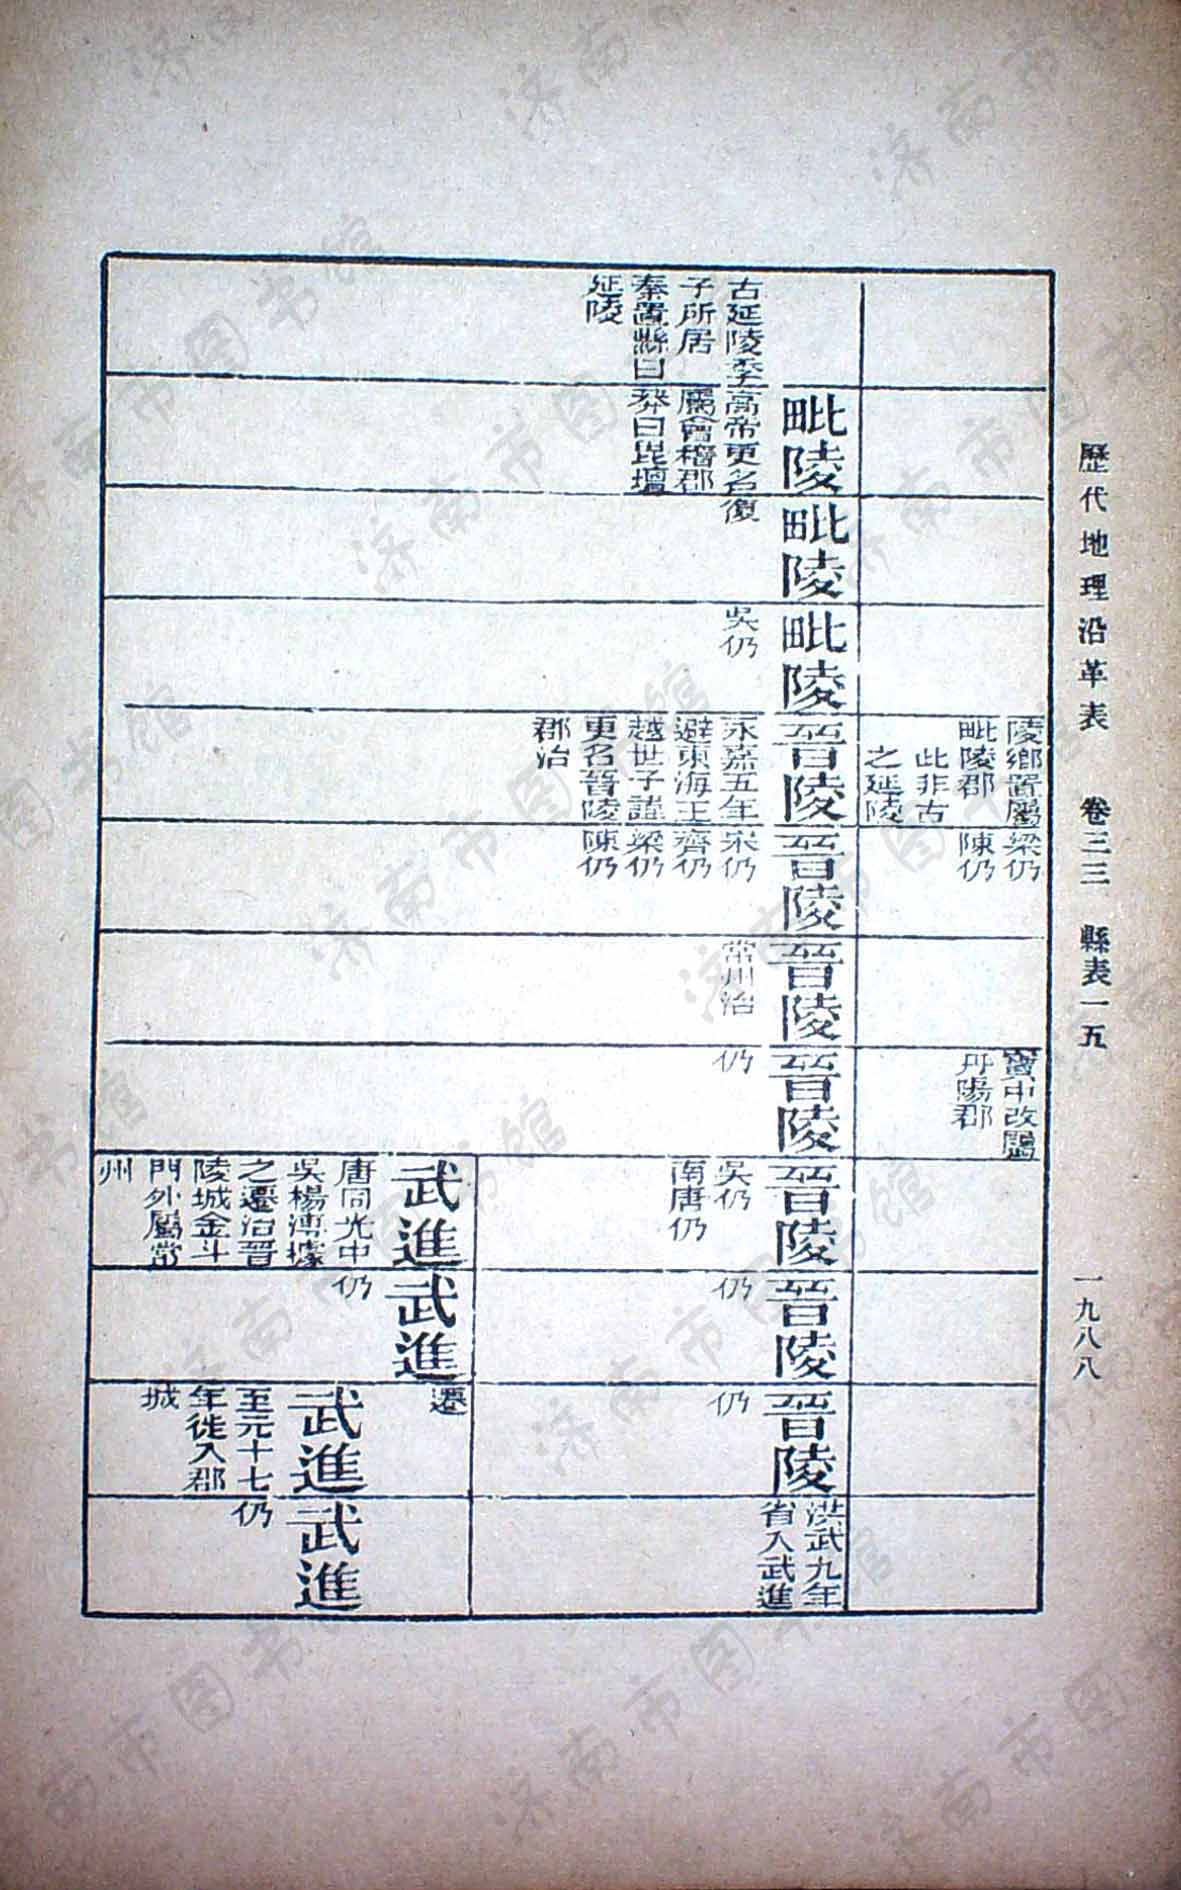 歷代地理沿革表　卷三三　縣表一五　一九八八
陵鄉置屬
毗陵郡
此非古
之延陵
梁仍
陳仍
寶中改屬
丹陽郡
古延陵季
子所居
秦置縣曰
延陵
毗陵
高帝更名
屬會稽郡
莽曰毘壇
毗陵
復
毗陵
吳仍
晉陵
永嘉五年
避東海王
越世子諱
更名晉陵
郡治
晉陵
宋仍
齊仍
梁仍
陳仍
晉陵
常州治
晉陵
仍
晉陵
吳仍
南唐仍
晉陵
仍
晉陵
仍
洪武九年
省入武進
武進
唐同光中
吳楊溥據
之遷治晉
陵城金斗
門外屬常
州
武進
仍
遷
武進
至元十七
年徙入郡
城
武進
仍
济南市图书馆